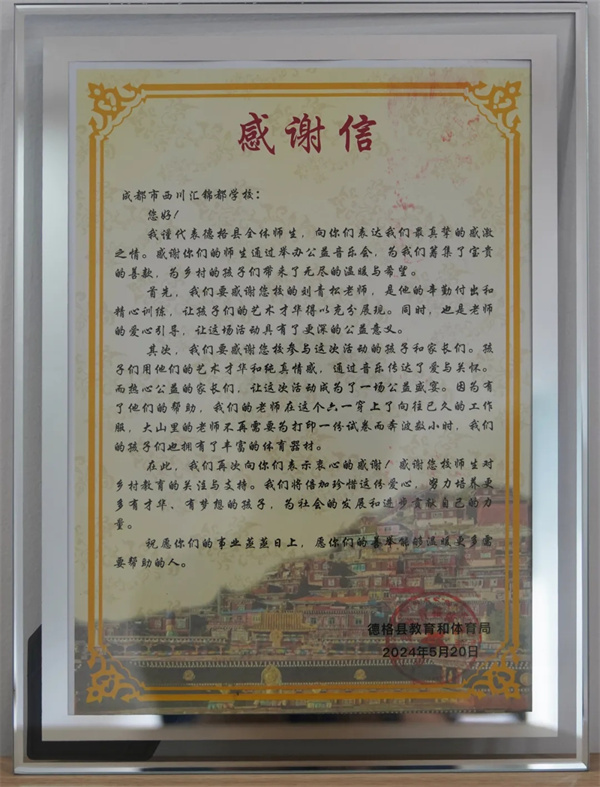 感谢信
成都市西川汇锦都学校：
您好！
我谨代表德格县全体师生，向你们表达我们最真挚的感激
之情。感谢你们的师生通过举办公益音乐会，为我们筹集了宝贵
的善款，为乡村的孩子们带来了无尽的温暖与希望。
首先，我们要感谢您校的刘青松老师，是他的辛勤付出和
精心训练，让孩子们的艺术才华得以充分展现。同时，也是老师
的爱心引导，让这场活动具有了更深的公益意义。
其次，我们要感谢您校参与这次活动的孩子和家长们。孩
子们用他们的艺术才华和纯真情感，通过音乐传达了爱与关怀。
而热心公益的家长们，让这次活动成为了一场公益盛宴。因为有
了他们的帮助，我们的老师在这个六一穿上了向往已久的工作
服，大山里的老师不再需要为打印一份试卷而奔波数小时，我们
的孩子们也拥有了丰富的体育器材。
在此，我们再次向你们表示衷心的感谢！感谢您校师生对
乡村教育的关注与支持。我们将倍加珍惜这份爱心，努力培养更
多有才华、有梦想的孩子，为社会的发展和进步贡献自己的力
量。
祝愿你们的事业蒸蒸日上，愿你们的善举能够温暖更多需
要帮助的人。
德格县教育和体育局
2024年5月20日